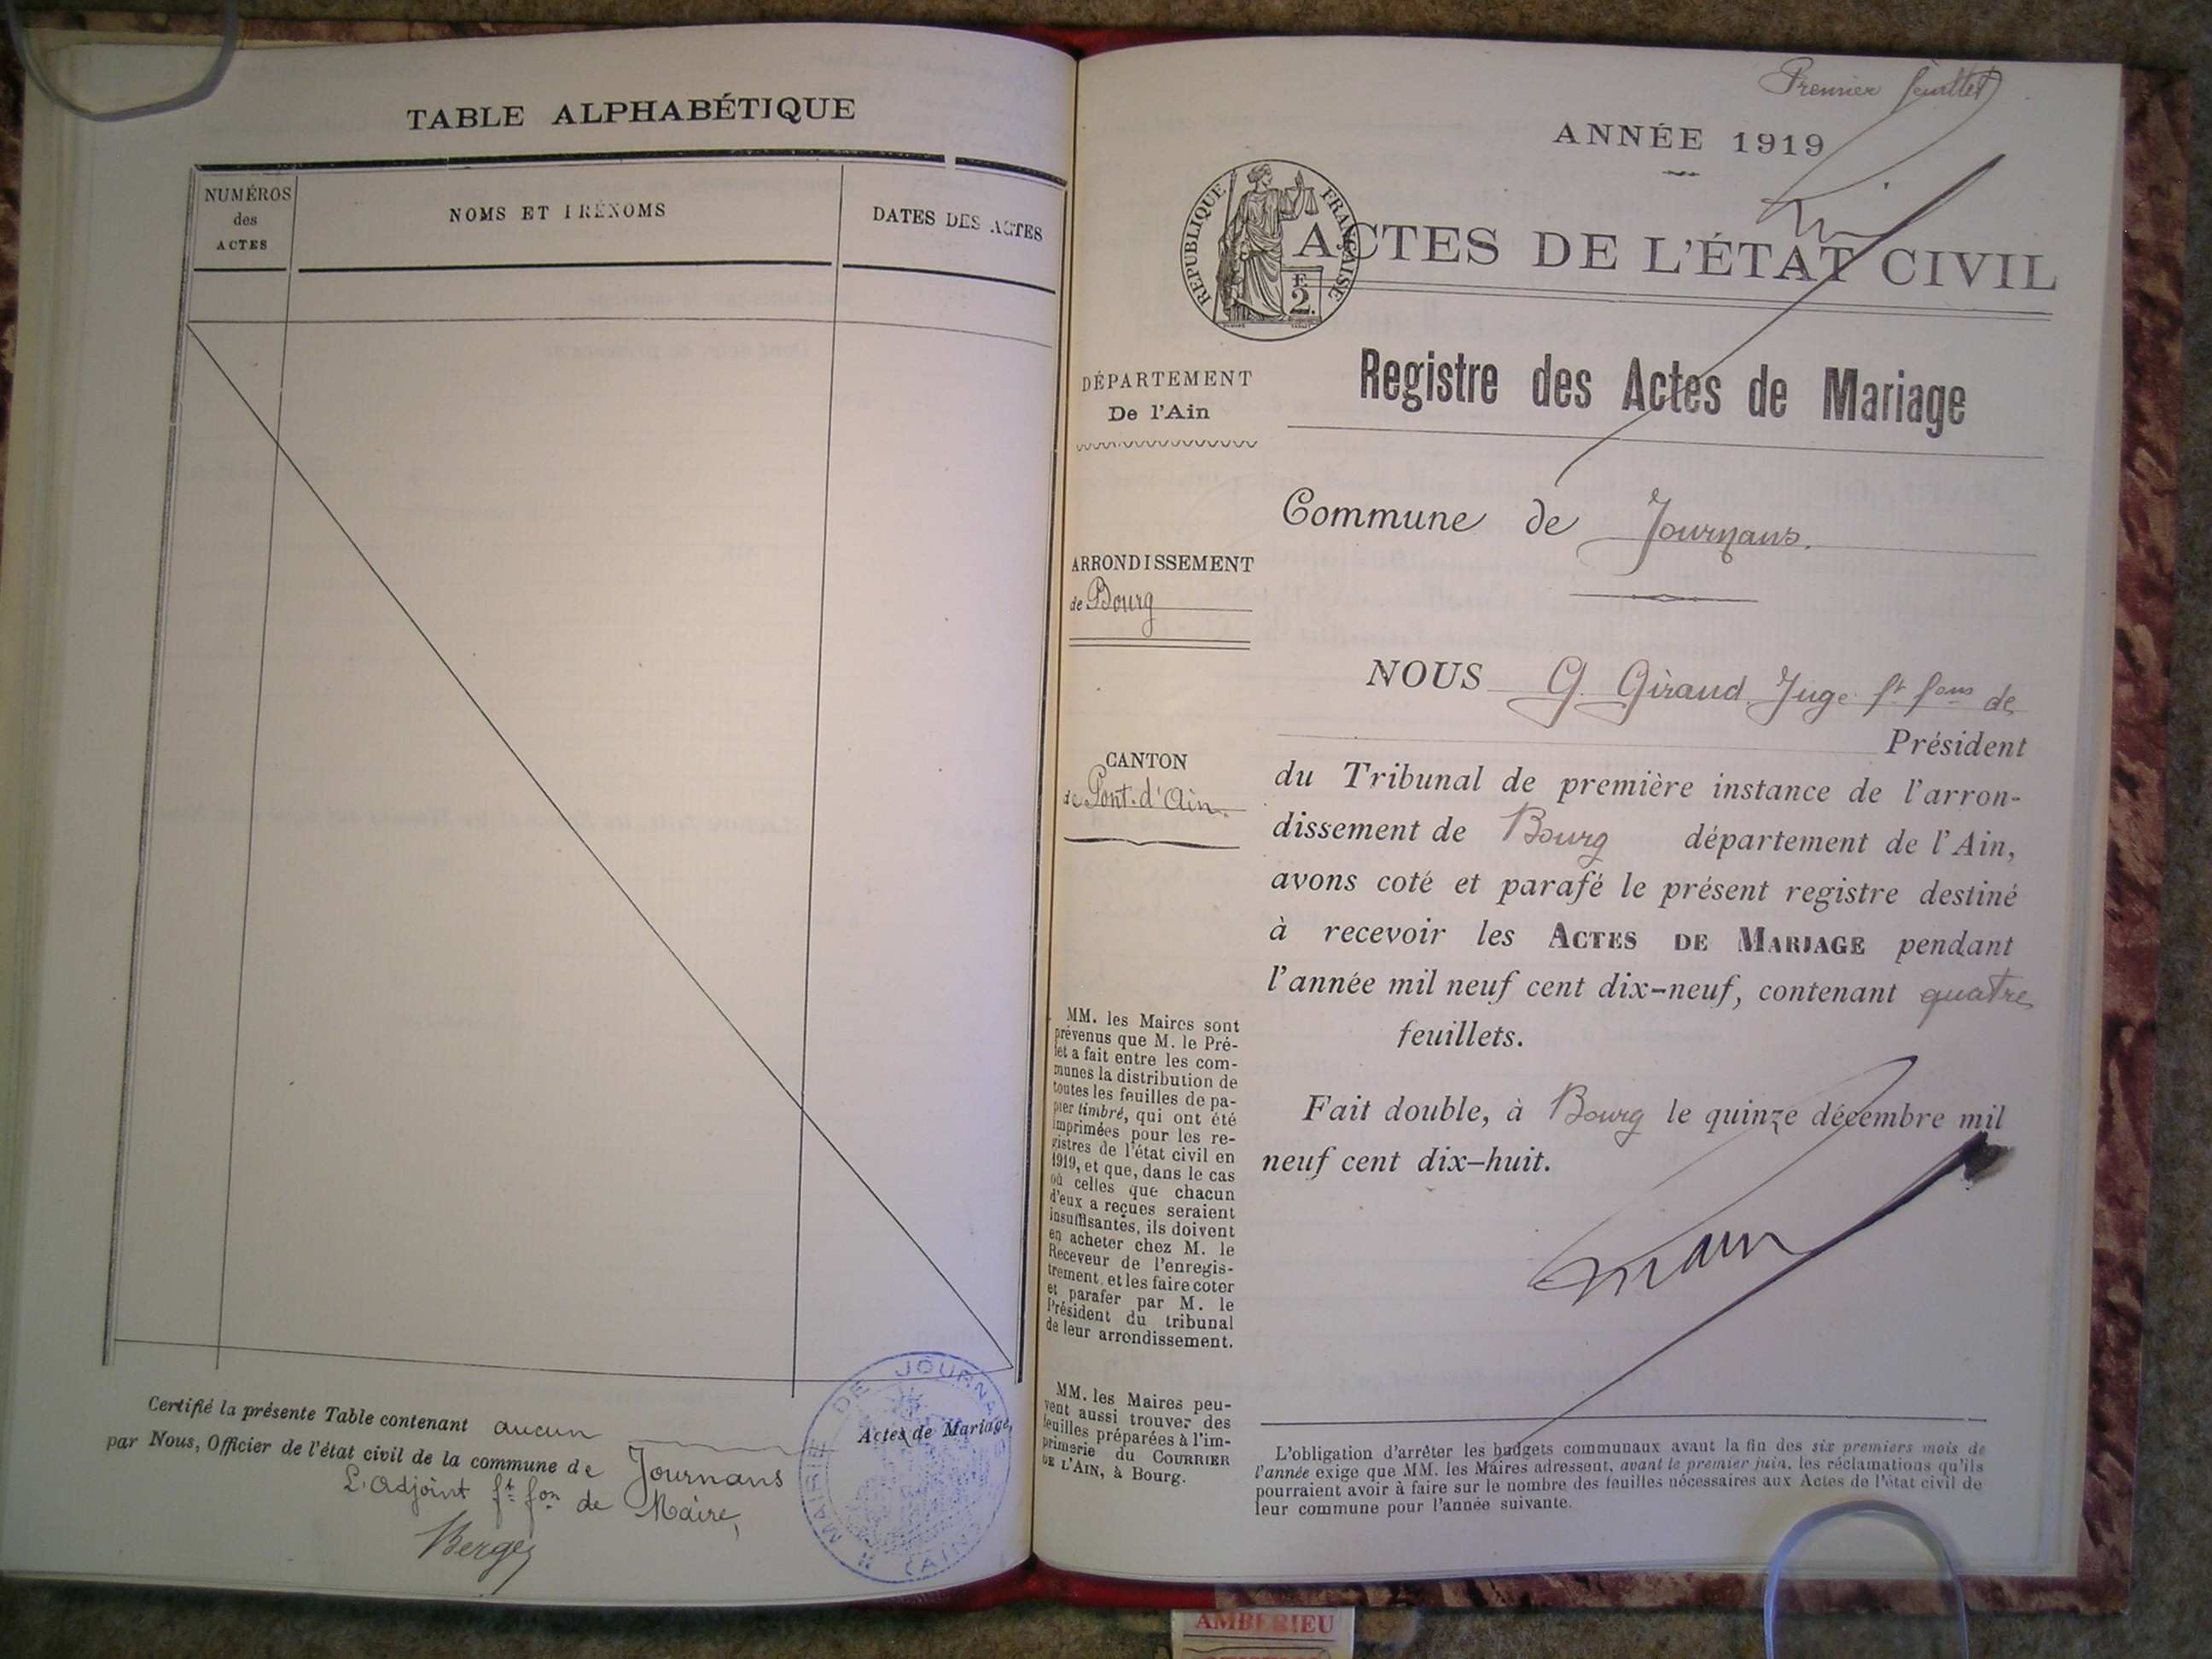 TABLE ALPHABÉTIQUE
NUMÉROS
des
ACTES
NOMS ET PRÉNOMS
DATES DES ACTES
Certifié la présente Table contenant aucun Actes de Mariage,
par Nous, Officier de l'état civil de la commune de Journans
L'adjoint ft fon de Maire,
MAIRIE DE JOURNANS
(AIN)
Premier feuillet
ANNÉE 1919
REPUBLIQUE FRANÇAISE
F.
2.
ACTES DE L'ÉTAT CIVIL
DÉPARTEMENT
De l'Ain
Registre des Actes de Mariage
Commune de Journans.
ARRONDISSEMENT
de Bourg
NOUS G. Giraud Juge ft fons de
Président
CANTON
de Pont-d'Ain.
du Tribunal de première instance de l'arron-
dissement de Bourg département de l'Ain,
avons coté et parafé le présent registre destiné
à recevoir les ACTES DE MARIAGE pendant
l'année mil neuf cent dix-neuf, contenant quatre
feuillets.
Fait double, à Bourg le quinze décembre mil
neuf cent dix-huit.
MM. les Maires sont
prévenus que M. le Pré-
fet a fait entre les com-
munes la distribution de
toutes les feuilles de pa-
pier timbré, qui ont été
imprimées pour les re-
gistres de l'état civil en
1919, et que, dans le cas
où celles que chacun
d'eux a reçues seraient
insuffisantes, ils doivent
en acheter chez M. le
Receveur de l'enregis-
trement, et les faire coter
et parafer par M. le
Président du tribunal
de leur arrondissement.
MM. les Maires peu-
vent aussi trouver des
feuilles préparées à l'im-
primerie du COURRIER
DE L'AIN, à Bourg.
L'obligation d'arrêter les budgets communaux avant la fin des six premiers mois de
l'année exige que MM. les Maires adressent, avant le premier juin, les réclamations qu'ils
pourraient avoir à faire sur le nombre des feuilles nécessaires aux Actes de l'état civil de
leur commune pour l'année suivante.
AMBERIEU